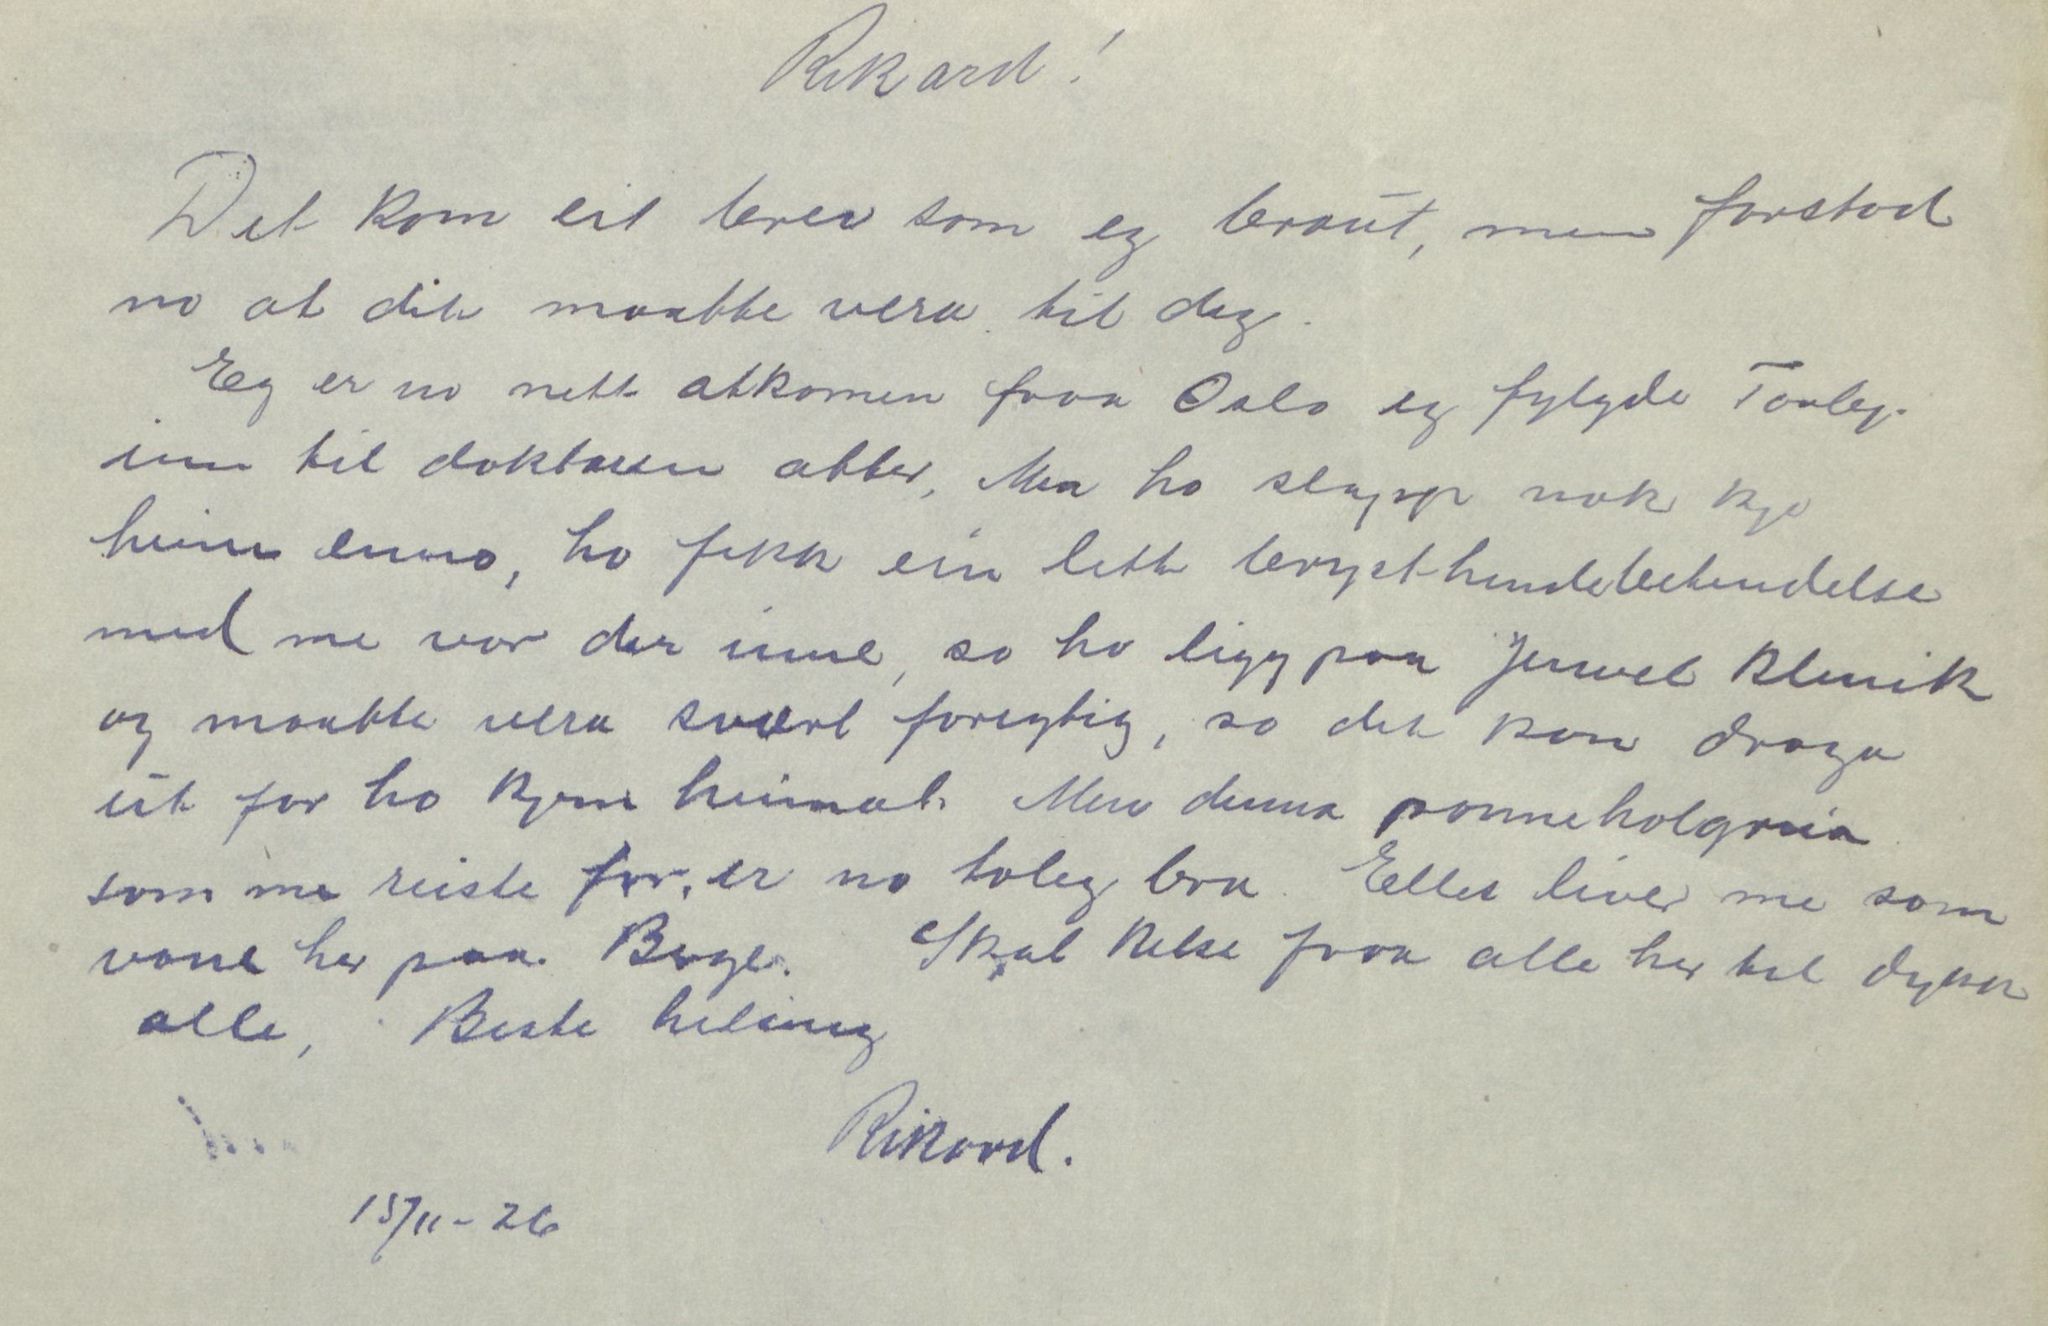 Rikard!
Det kom eit brev som eg braut, men forstod
no at dit maatte vera til deg.
Eg er no nett atkomen fraa Oslo eg fylgde Torleg
inn til doktaren atter, Men ho slapp nok kje
heim enno, ho fekk ein lett brysthindebetendelse
med me var der inne, so ho ligg paa Jervel Klinik
og maatte vera svært foregtig, so det kan draga
ut for ho kjem heimat. Men denna panneholgreia
som me reiste for, er no toleg bra. Elles liver me som
vane her paa Berge. Skal helse fraa alle her til dykk
alle, Beste helsing
Rikard.
15/11-26